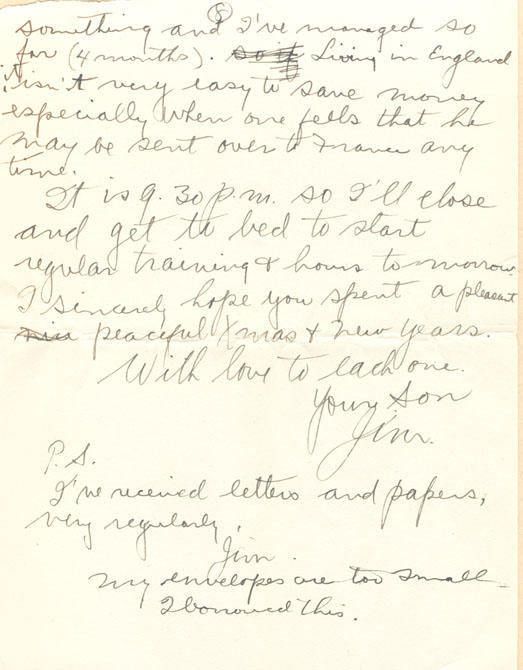 8
something and I've managed so
far (4 months). Living in England
it isn't very easy to save money
especially when one feels that he
may be sent over to France any
time.
It is 9.30 p.m. so I'll close
and get to bed to start
regular training & hours to-morrow.
I sincerely hope you spent a pleasant
peaceful Xmas & New Years.
With love to each one.
Your Son
Jim.
P.S.
I've received letters and papers,
very regularly.
Jim.
My envelopes are too small
I borrowed this.